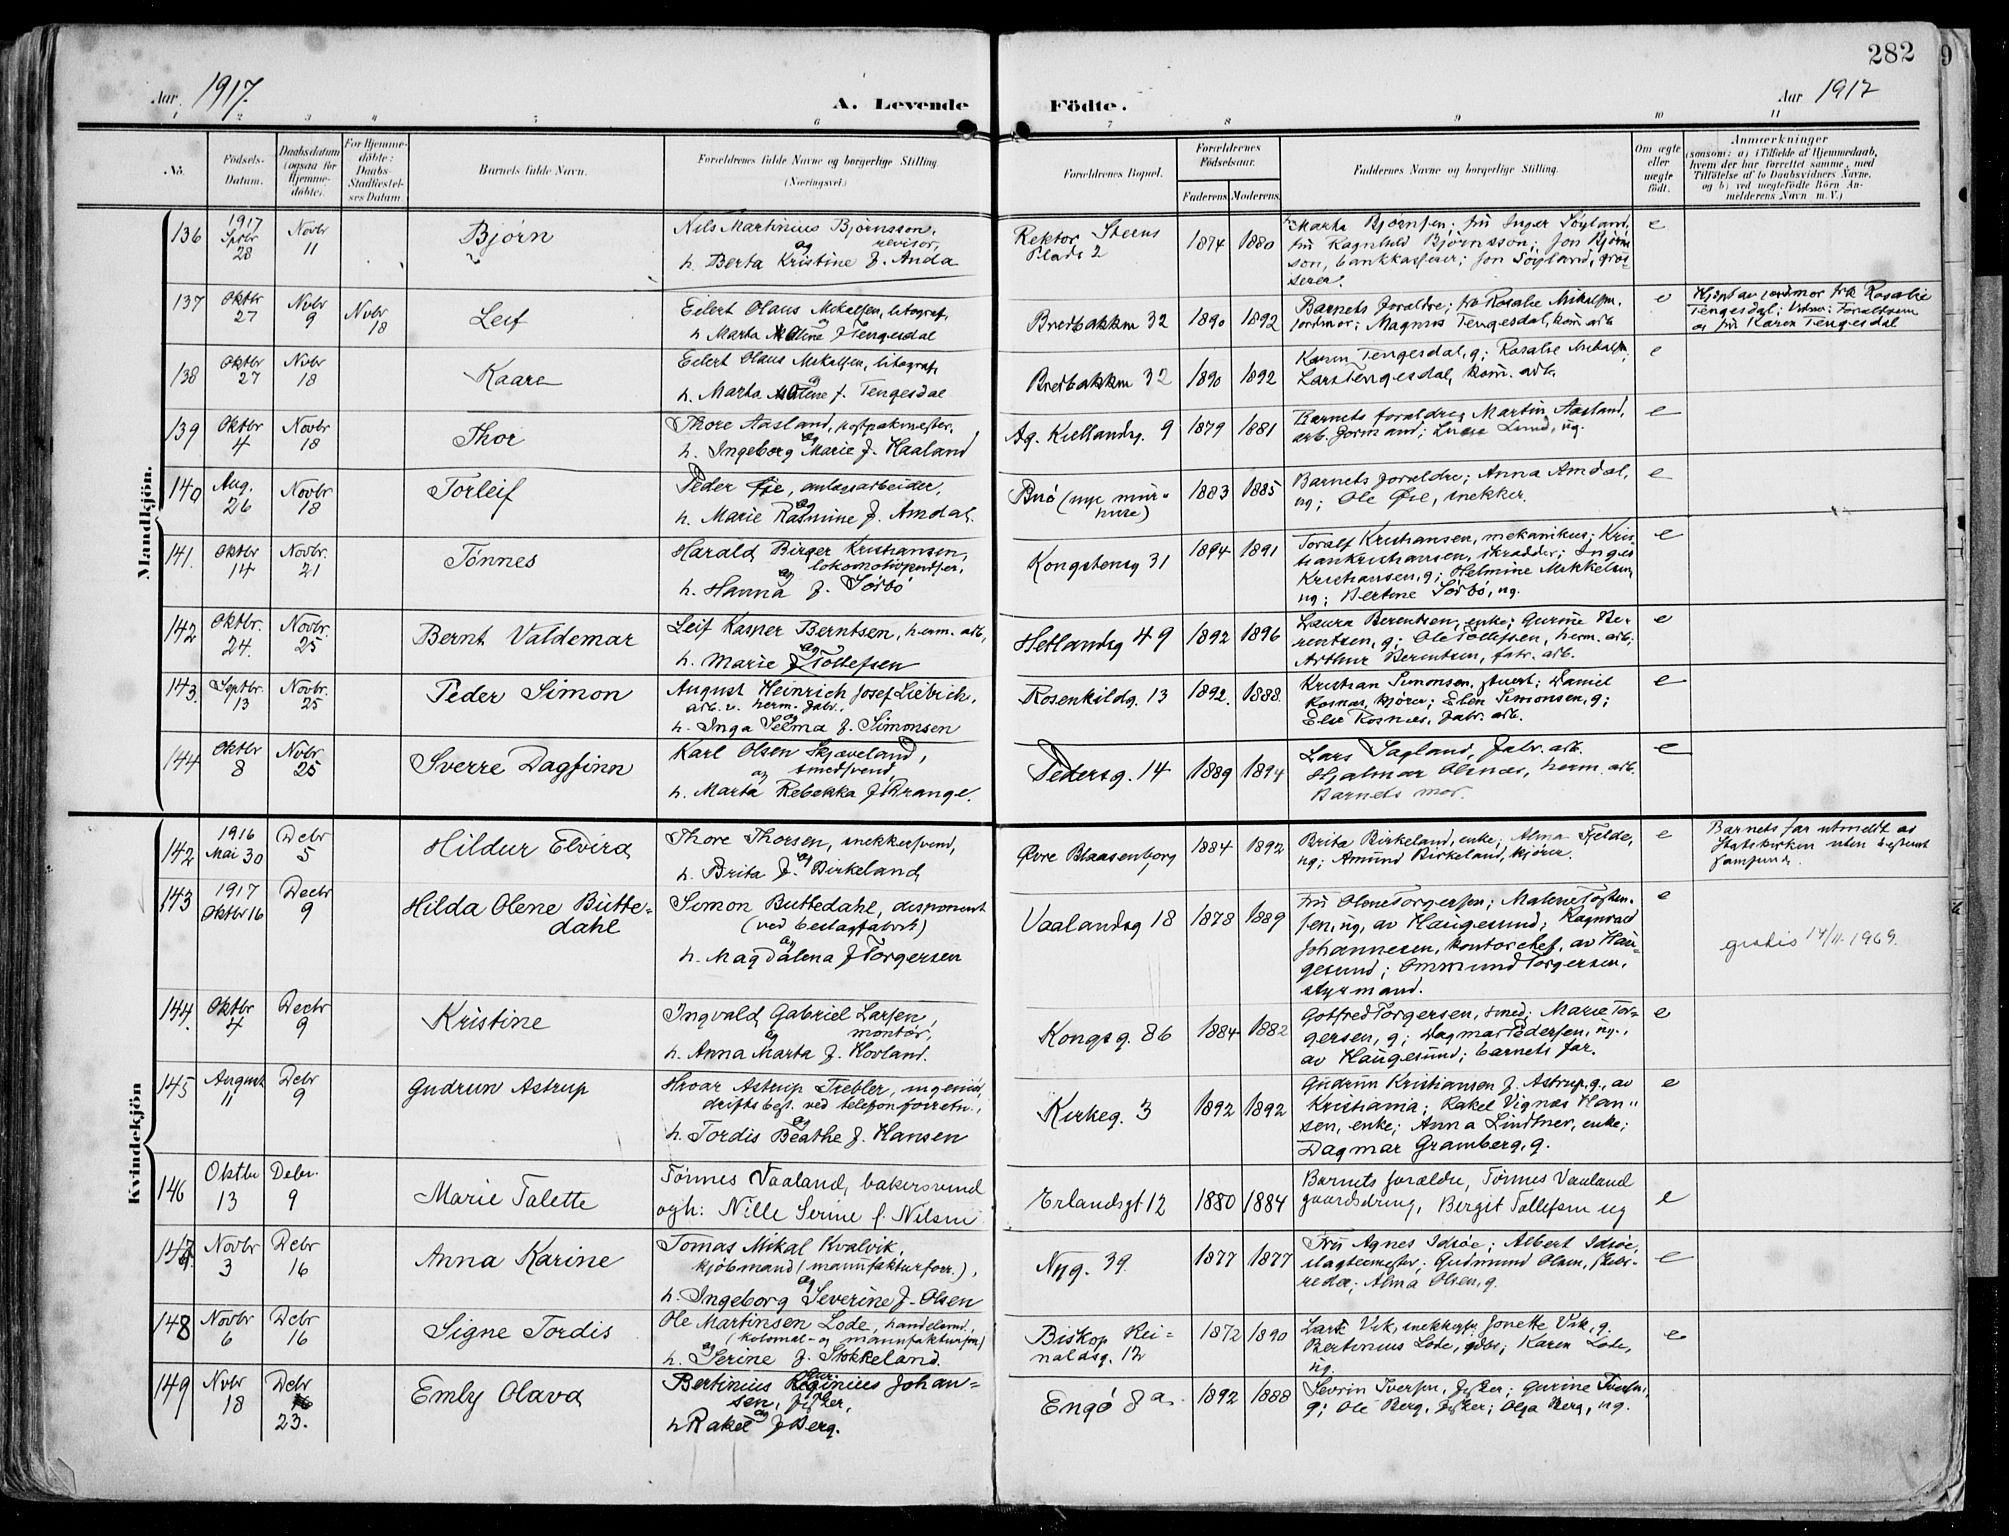 282
9
Aar 1917.
A. Levende
Födte.
Aar 1917
1 2 3 4 5 6 7 8 9 10 11
No.
Födsels-
Datum.
Daabsdatum
(ogsaa for
Hjemme-
døbte).
For Hjemme-
døbte:
Daabs-
Stadfæstel-
ses Datum.
Barnets fulde Navn.
Forældrenes fulde Navne og borgerlige Stilling
(Næringsvei.)
Forældrenes Bopæl.
Forældrenes
Födselsaar.
Faderens.
Moderens.
Faddernes Navne og borgerlige Stilling.
Om ægte
eller
uægte
født.
Anmærkninger
(saasom: a) i Tilfælde af Hjemmedaab,
hvem der har forrettet samme, med
Tilføielse af to Daabsvidners Navne,
og b) ved uægtefödte Börn An-
melderens Navn m. V.)
Mandkjön.
136
1917
Sptbr
28
Novbr
11
Bjørn
Nils Martinius Bjørnsson,
revisor,
og
h. Berta Kristine f. Anda
Rektor Steens
Plads 2
1874
1880
Marta Bjørnsen; fru Inger Søyland,
fru Ragnhild Bjørnsson; Jon Bjørns
son, bankkasserer; Jon Søyland, gros-
serer.
e
137
Oktbr
27
Novbr
9
Novbr
18
Leif
Eilert Olaus Mikalsen, litograf,
og
h. Marta Malene f Tengesdal
Bredbakken 32
1890
1892
Barnets forældre; frk Rosalie Mikalsen,
jordmor; Magnus Tengesdal, kom. arb
e
Hjdøpt av jordmor frk Rosalie
Tengesdal; Vidner: Forældrene
og fru Karen Tengesdal
138
Oktbr
27
Novbr
18
Kaare
Eilert Olaus Mikalsen, litograf,
og
h. Marta Malene f. Tengesdal
Bredbakken 32
1890
1892
Karen Tengesdal, g; Rosalie Mikalsen;
Lars Tengesdal, kom. arb.
e
139
Oktbr
4
Novbr
18
Thor
Thore Aasland, postpakmester,
og
h. Ingeborg Marie f. Haaland
Ag. Kiellandsg. 9
1879
1881
Barnets foreldre; Martin Aasland,
arb. formand; Lund, ug.
e
140
Aug.
26
Novbr
18
Torleif
Peder Øie, anlægsarbeider,
og
h. Marie Rasmine f. Amdal.
Buø (nye mur-
huse)
1883
1885
Barnets foreldre; Anna Amdal,
ug; Ole Øie, snekker.
e
141.
Oktbr
14
Novbr.
21
Tønnes
Harald Birger Kristiansen,
lokomotivpudser,
og
h. Hanna f. Sørbø
Kongstensg 31
1894
1891
Toralf Kristiansen, mekanikus; Kris
tian Kristiansen, skrædder; Inger
Kristiansen, g; Helmine Mikkelsen,
ug; Bertine Sørbø, ug.
e
142
Oktbr.
24.
Novbr.
25
Bernt Valdemar
Leif Kasper Berntsen, herm. arb,
og
h. Marie f Tollefsen
Hetlandsg 49
1892
1896
Laura Berentsen, enke; Gurine Be-
rentsen, g; Ole Tollefsen, herm. arb.
Arthur Berentsen, fabr. arb.
e
143.
Septbr.
13
Novbr.
25
Peder Simon
August Heinrich Josef Liebrich,
arb. v. herm. fabr.
og
h. Inga Selma f. Simonsen
Rosenkildg. 13
1892.
1888.
Kristian Simonsen, stuert; Daniel
Rosnæs, kjører; Elen Simonsen, g;
Else Rosnæs, fabr. arb.
e
144
Oktbr
8
Novbr.
25
Sverre Dagfinn
Karl Olsen Skjæveland,
smedsvend,
og
h. Marta Rebekka f Prange.
Pedersg. 14
1889
1894
Lars Sagland, fabr. arb.
Hjalmar Olsnes, herm. arb.
Barnets mor.
e
Kvindekjön
142
1916
Mai 30
Debr
5
Hildur Elvira
Thore Thorsen, snekkersvend,
og
h. Brita f. Birkeland
Øvre Blaasenborg
1884
1892
Brita Birkeland, enke; Alma Fjelde,
ug; Amund Birkeland, kjører.
e
Barnets far utmeldt av
Statskirken uten bestemt
samfund.
143
1917
Oktbr 16
Decbr
9
Hilda Olene Butte-
dahl
Simon Buttedahl, disponent
(ved beslagfabrik)
og
h. Magdalena f Torgersen
Vaalandsg 18
1878
1889
Fru Olene Torgersen; Malene Torgersen-
sen, ug, av Haugesund; Ragnvald
Johannesen, kontorchef, av Hau-
gesund; Ommund Torgersen,
styrmand.
e
gratis 14/11-1969.
144.
Oktbr
4
Decbr
9
Kristine
Ingvald Gabriel Larsen,
montør,
og
h. Anna Marta f. Hovland.
Kongsg. 86
1884
1882
Gotfred Torgersen, smed; Marie Tor-
gersen, g; Dagmar Pedersen, ug.,
av Haugesund; barnets far.
e
145
August
11
Debr
9
Gudrun Astrup
Hroar Astrup Trebler, ingeniør,
driftsbest. ved telefonforretn.,
og
h. Tordis Beathe f. Hansen
Kirkeg. 3
1892
1892
Gudrun Kristiansen f. Astrup, g., av
Kristiania; Rakel Vignæs Han-
sen, enke; Anna Lindtner, enke;
Dagmar Gramberg, g.
e
146
Oktbr
13
Debr.
9
Marie Talette
Tønnes Vaaland, bakersvend
og h: Nille Serine f. Nilsen
Erlandsgt 12
1880
1884
Barnets forældre, Tønnes Vaaland
gaardsdreng, Bergit Tollefsen ug
e
147
Novbr
3
Debr
16
Anna Karine
Tomas Mikal Kvalvik,
kjøbmand (manufakturforr.),
og
h. Ingeborg Severine f. Olsen
Nyg. 39.
1877
1877
Fru Agnes Idsøe; Albert Idsøe,
slagtermester; Gudmund Olsen, skibs-
reder; Alma Olsen, g.
e
148
Novbr
6
Debr
16
Signe Tordis
Ole Martinsen Lode, handelsmd,
(kolonial- og manufakturforr)
og
h. Serine f. Stokkeland.
Biskop Rei-
naldsg. 12
1872
1890
Lars Vik, snekkersv, Jonette Vik, g,
Bertinius Lode, gdbr; Karen Lode,
ug.
e
149
Novbr
18
Debr
23.
Emly Olava
Bertinius Reginius Johan-
sen, fisker,
og
h Rakel f Berg.
Engø 8 a.
1892
1888
Sevrin Iversen, fisker; Gurine Iversen,
g; Ole Berg, fisker; Olga Berg, ug.